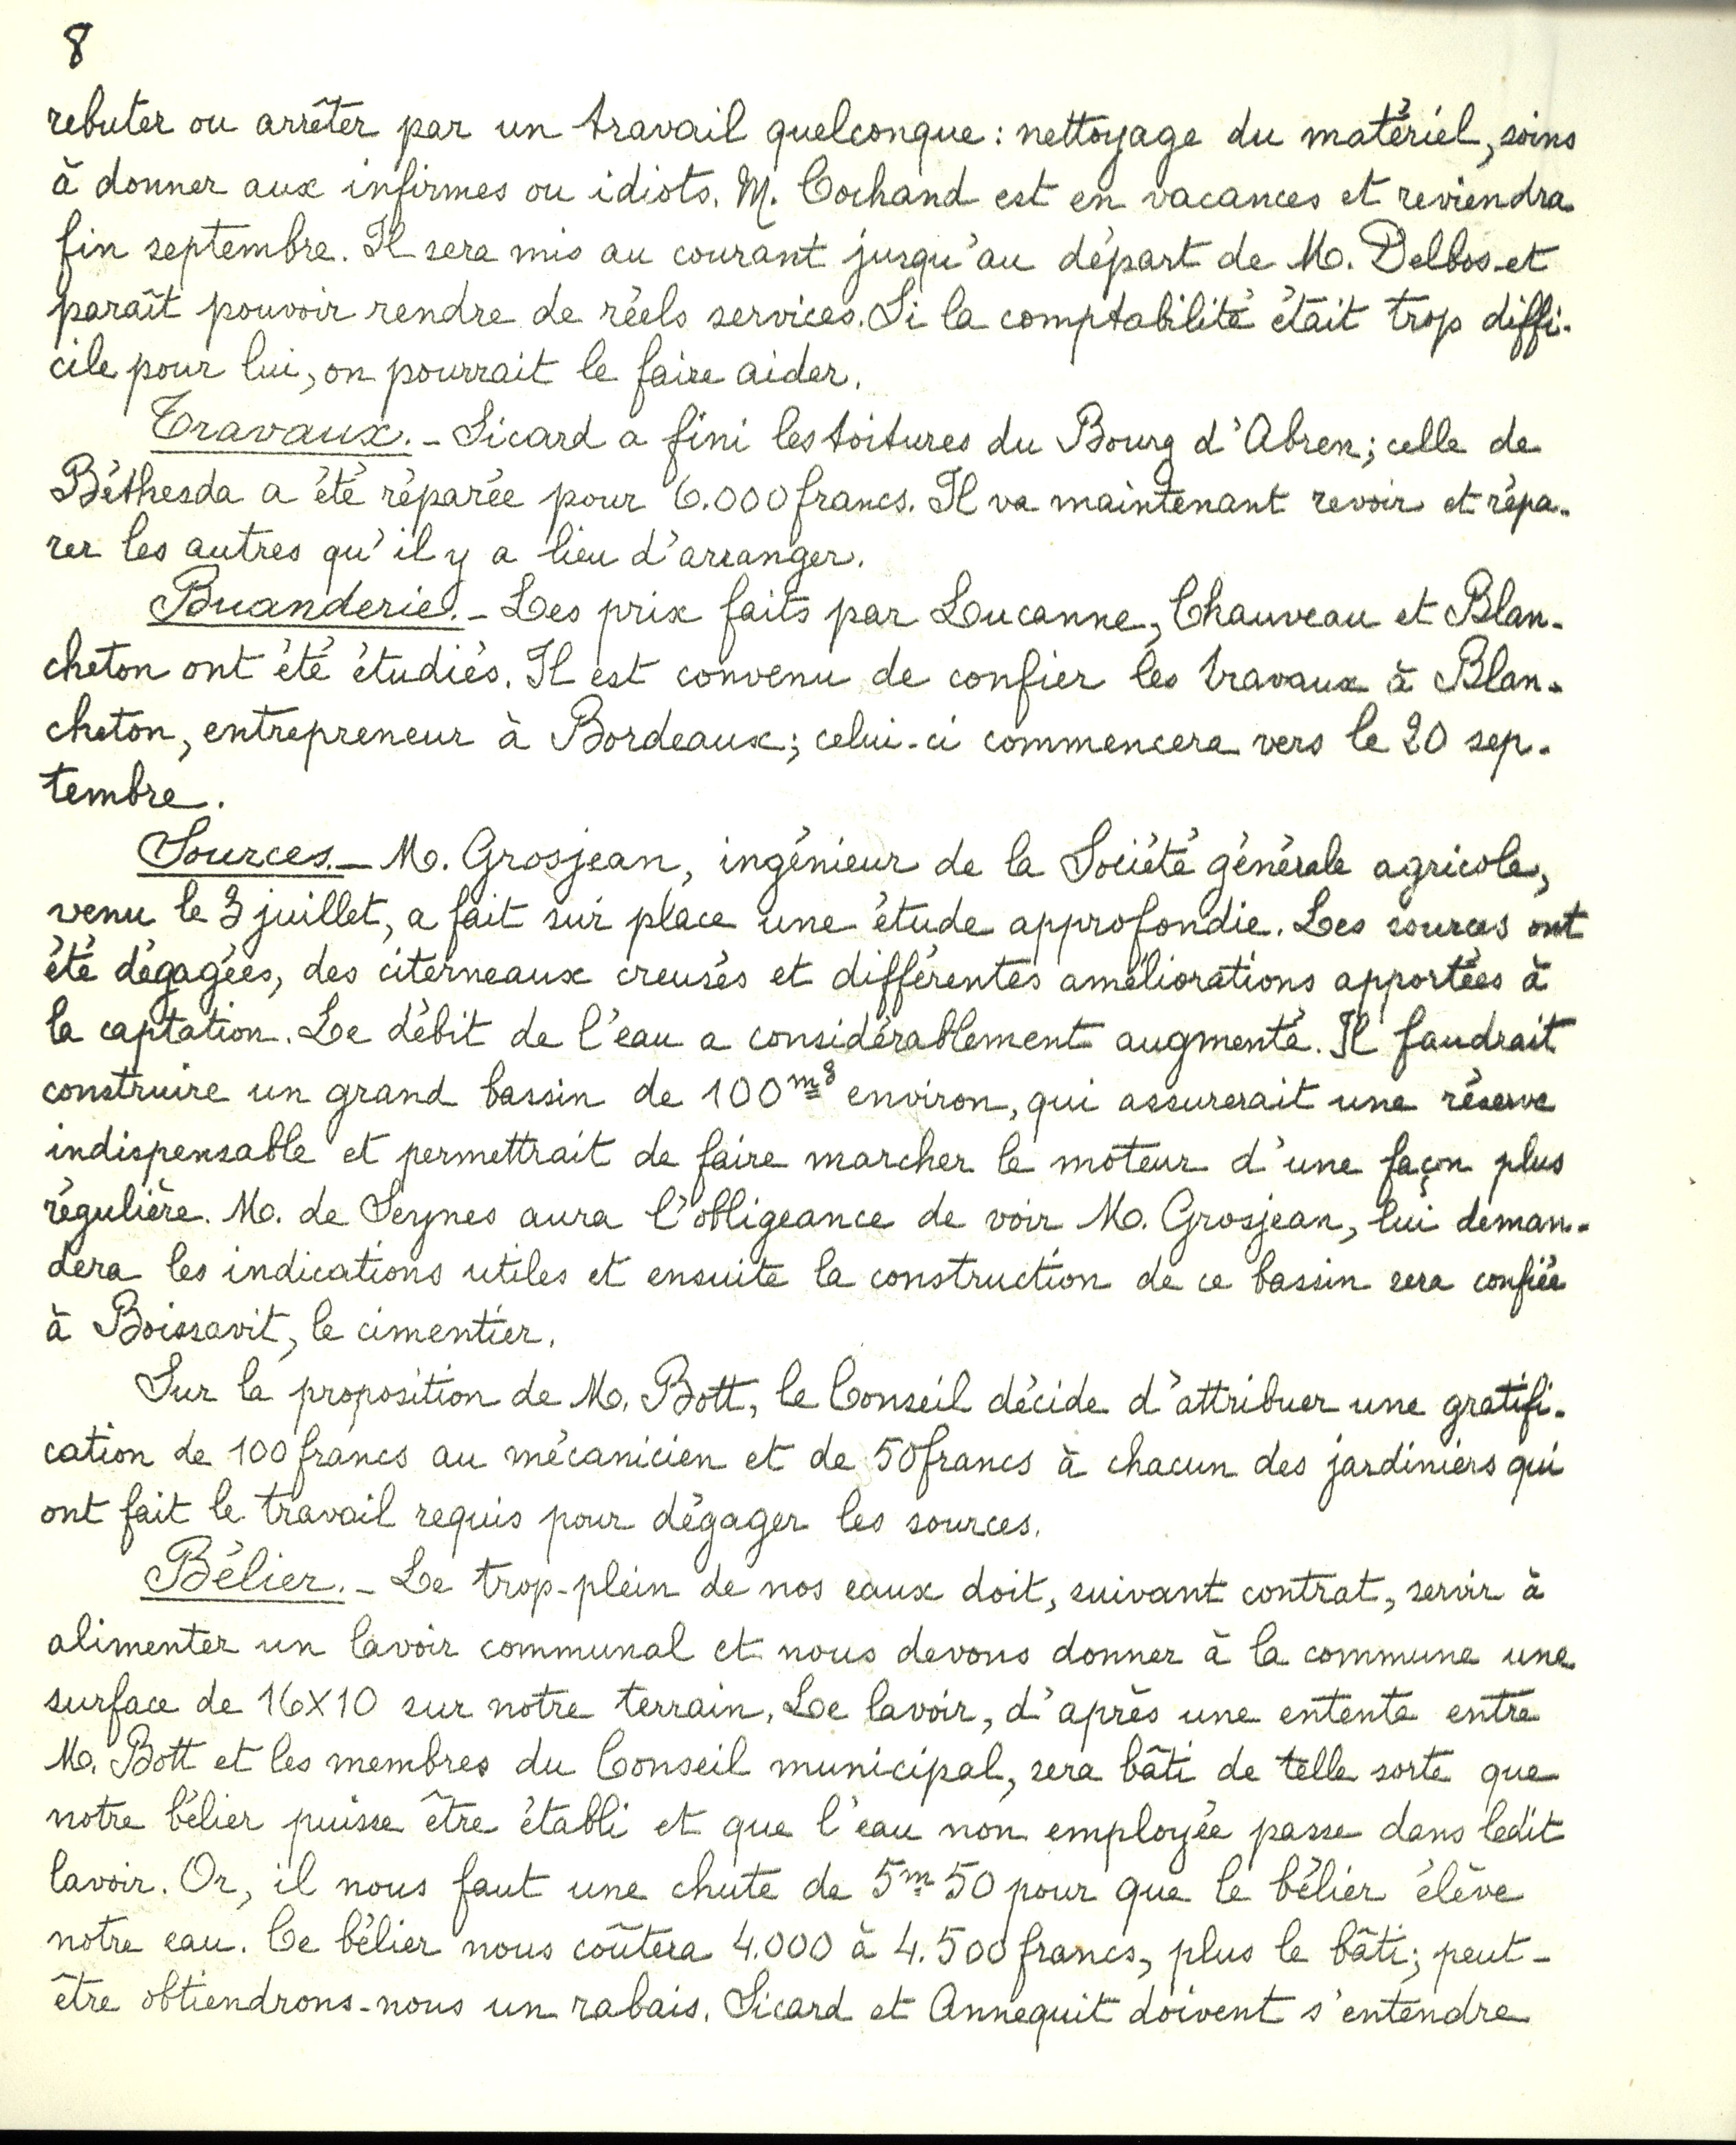 8
rebuter ou arrêter par un travail quelconque : nettoyage du matériel, soins
à donner aux infirmes ou idiots. M. Cochand est en vacances et reviendra
fin septembre. Il sera mis au courant jusqu'au départ de M. Delbos et
paraît pouvoir rendre de réels services. Si la comptabilité était trop diffi-
cile pour lui, on pourrait le faire aider.
Travaux. - Sicard a fini les toitures du Bourg d'Abren ; celle de
Béthesda a été réparée pour 6.000 francs. Il va maintenant revoir et répa-
rer les autres qu'il y a lieu d'arranger.
Buanderie. - Les prix faits par Lucanne, Chauveau et Blan-
cheton ont été étudiés. Il est convenu de confier les travaux à Blan-
cheton, entrepreneur à Bordeaux ; celui-ci commencera vers le 20 sep-
tembre.
Sources. - M. Grosjean, ingénieur de la Société générale agricole,
venu le 3 juillet, a fait sur place une étude approfondie. Les sources ont
été dégagées, des citerneaux creusés et différentes améliorations apportées à
la captation. Le débit de l'eau a considérablement augmenté. Il faudrait
construire un grand bassin de 100 m3 environ, qui assurerait une réserve
indispensable et permettrait de faire marcher le moteur d'une façon plus
régulière. M. de Seynes aura l'obligeance de voir M. Grosjean, lui deman-
dera les indications utiles et ensuite la construction de ce bassin sera confiée
à Boissavit, le cimentier.
Sur la proposition de M. Bott, le Conseil décide d'attribuer une gratifi-
cation de 100 francs au mécanicien et de 50 francs à chacun des jardiniers qui
ont fait le travail requis pour dégager les sources.
Bélier. - Le trop-plein de nos eaux doit, suivant contrat, servir à
alimenter un lavoir communal et nous devons donner à la commune une
surface de 16x10 sur notre terrain. Le lavoir, d'après une entente entre
M. Bott et les membres du Conseil municipal, sera bâti de telle sorte que
notre bélier puisse être établi et que l'eau non employée passe dans ledit
lavoir. Or, il nous faut une chute de 5m50 pour que le bélier élève
notre eau. Ce bélier nous coûtera 4.000 à 4.500 francs, plus le bâti ; peut-
être obtiendrons-nous un rabais. Sicard et Annequit doivent s'entendre